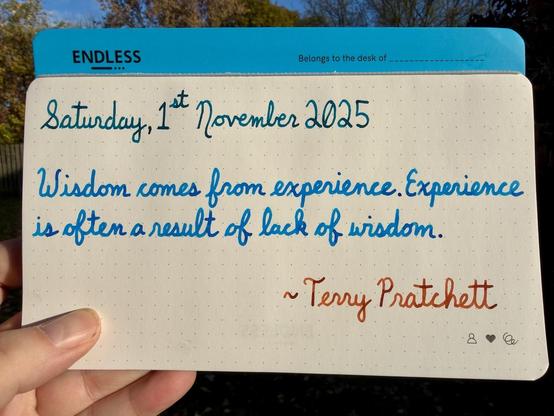 ENDLESS
Belongs to the desk of
Saturday, 1st November 2025
Wisdom comes from experience. Experience
is often a result of lack of wisdom.
~ Terry Pratchett
ENDLESS